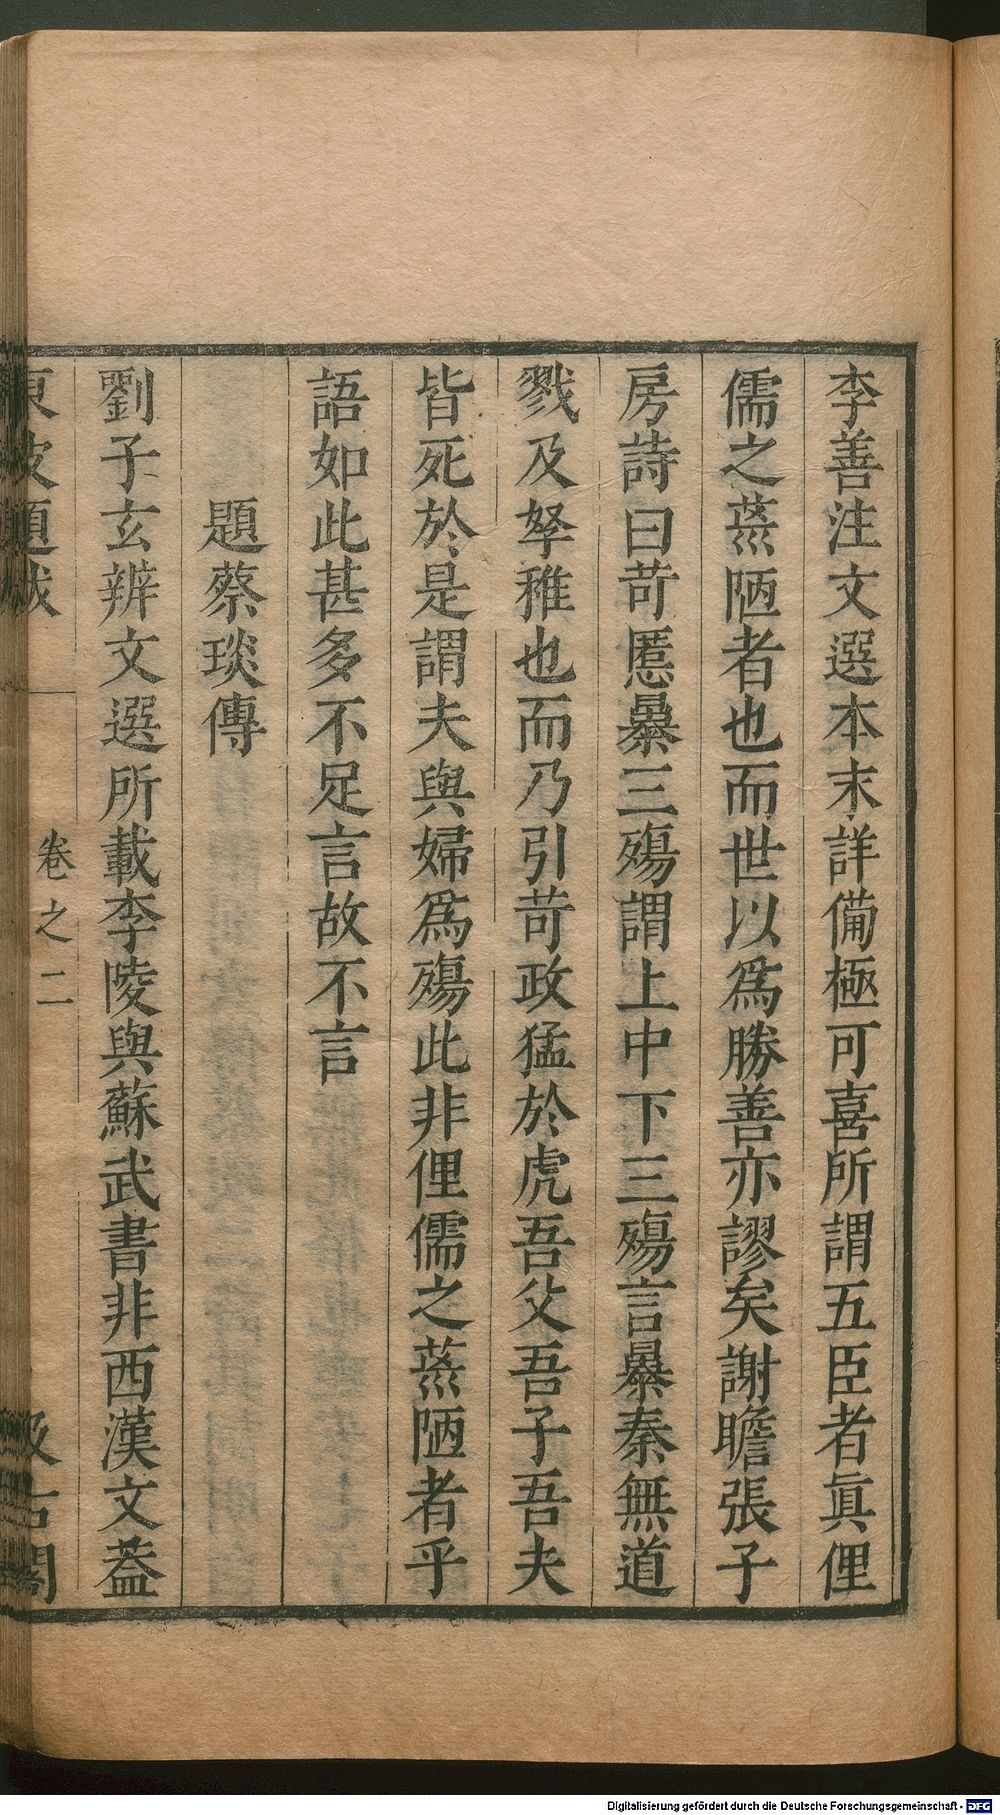 李善注文選本末詳備極可喜所謂五臣者眞俚
儒之荒陋者也而世以爲勝善亦謬矣謝瞻張子
房詩曰苛慝暴三殤謂上中下三殤言暴秦無道
戮及孥稚也而乃引苛政猛於虎吾父吾子吾夫
皆死於是謂夫與婦爲殤此非俚儒之荒陋者乎
語如此甚多不足言故不言
題蔡琰傳
劉子玄辨文選所載李陵與蘇武書非西漢文葢
東坡題跋
卷之二
汲古閣
Digitalisierung gefördert durch die Deutsche Forschungsgemeinschaft - DFG